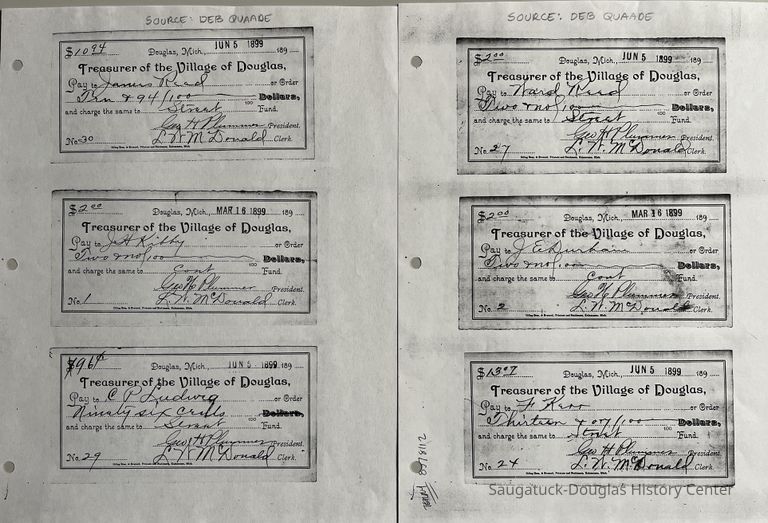 SOURCE: DEB QUAADE
$10 94 Douglas, Mich., JUN 5 1899 189
Treasurer of the Village of Douglas,
Pay to James Reed or Order
Ten & 94/100 Dollars,
and charge the same to Street Fund.
Geo H Plummer President.
No. 30 L. W. McDonald Clerk.
$2 00 Douglas, Mich., MAR 16 1899 189
Treasurer of the Village of Douglas,
Pay to J H Kirby or Order
Two no/100 Dollars,
and charge the same to Cont Fund.
Geo H Plummer President.
No. 1 L. W. McDonald Clerk.
$96¢ Douglas, Mich., JUN 5 1899 189
Treasurer of the Village of Douglas,
Pay to C P Ludwig or Order
Ninety six Cents Dollars,
and charge the same to Street Fund.
Geo H Plummer President.
No. 29 L W McDonald Clerk.
SOURCE: DEB QUAADE
$2 00 Douglas, Mich., JUN 5 1899 189
Treasurer of the Village of Douglas,
Pay to Ward Reed or Order
Two & no/100 Dollars,
and charge the same to Street Fund.
Geo H Plummer President.
No. 27 L. W. McDonald Clerk.
$2 00 Douglas, Mich., MAR 16 1899 189
Treasurer of the Village of Douglas,
Pay to J. E. Durham or Order
Two no/100 Dollars,
and charge the same to Cont Fund.
Geo H Plummer President.
No. 2 L. W. McDonald Clerk.
$13 07 Douglas, Mich., JUN 5 1899 189
Treasurer of the Village of Douglas,
Pay to F Kerr or Order
Thirteen & 07/100 Dollars,
and charge the same to Street Fund.
Geo H Plummer President.
No. 24 L. W. McDonald Clerk.
Saugatuck-Douglas History Center